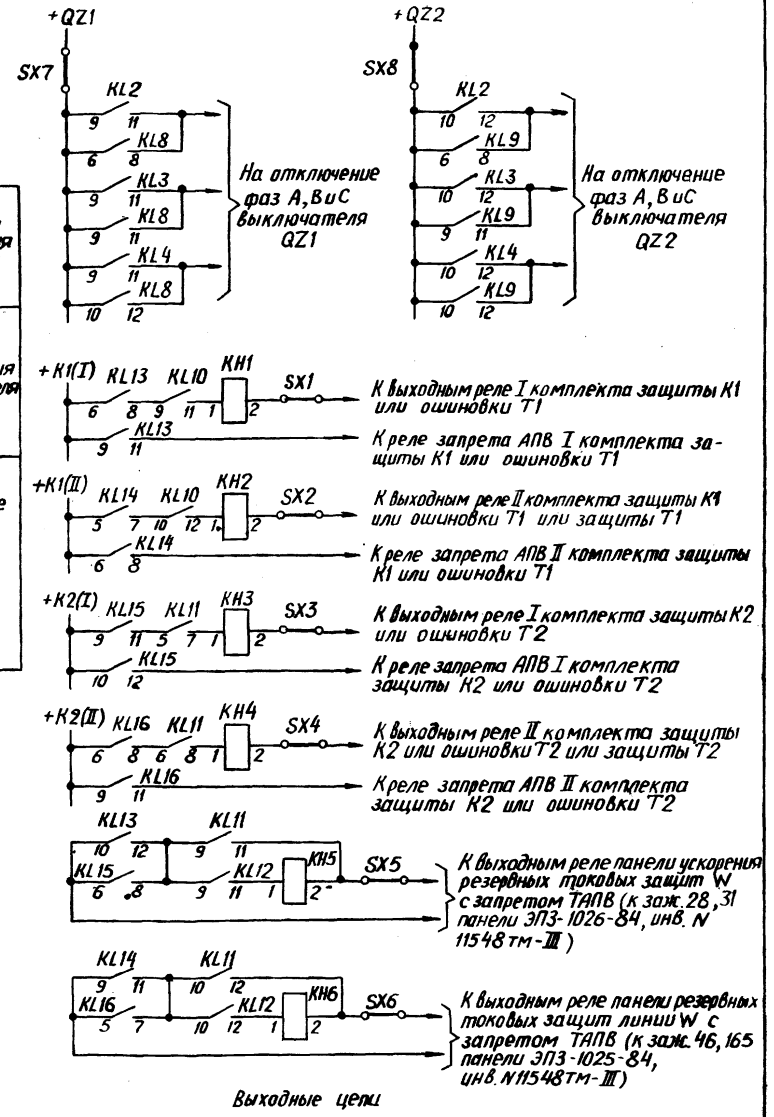 +QZ1
SX7
KL2
9 11
KL8
6 8
KL3
9 11
KL8
9 11
KL4
9 11
KL8
10 12
На отключение
фаз А, В и С
выключателя
QZ1
+QZ2
SX8
KL2
10 12
KL9
6 8
KL3
10 12
KL9
9 11
KL4
10 12
KL9
10 12
На отключение
фаз А, В и С
выключателя
QZ2
+K1(I)
KL13 KL10 KH1 SX1
6 8 9 11 1 2
К выходным реле I комплекта защиты К1
или ошиновки Т1
KL13
9 11
К реле запрета АПВ I комплекта за-
щиты К1 или ошиновки Т1
+K1(II)
KL14 KL10 KH2 SX2
5 7 10 12 1 2
К выходным реле II комплекта защиты К1
или ошиновки Т1 или защиты Т1
KL14
6 8
К реле запрета АПВ II комплекта защиты
К1 или ошиновки Т1
+K2(I)
KL15 KL11 KH3 SX3
9 11 5 7 1 2
К выходным реле I комплекта защиты К2
или ошиновки Т2
KL15
10 12
К реле запрета АПВ I комплекта
защиты К2 или ошиновки Т2
+K2(II)
KL16 KL11 KH4 SX4
6 8 6 8 1 2
К выходным реле II комплекта защиты
К2 или ошиновки Т2 или защиты Т2
KL16
9 11
К реле запрета АПВ II комплекта
защиты К2 или ошиновки Т2
KL13 KL11
10 12 9 11
KL15 KL12 KH5 SX5
6 8 9 11 1 2
К выходным реле панели ускорения
резервных токовых защит W
с запретом ТАПВ (к заж. 28, 31
панели ЭПЗ-1026-84, инв. N
11548тм-III)
KL14 KL11
9 11 10 12
KL16 KL12 KH6 SX6
5 7 10 12 1 2
К выходным реле панели резервных
токовых защит линии W с
запретом ТАПВ (к заж. 46, 165
панели ЭПЗ-1025-84,
инв. N11548тм-III)
Выходные цепи